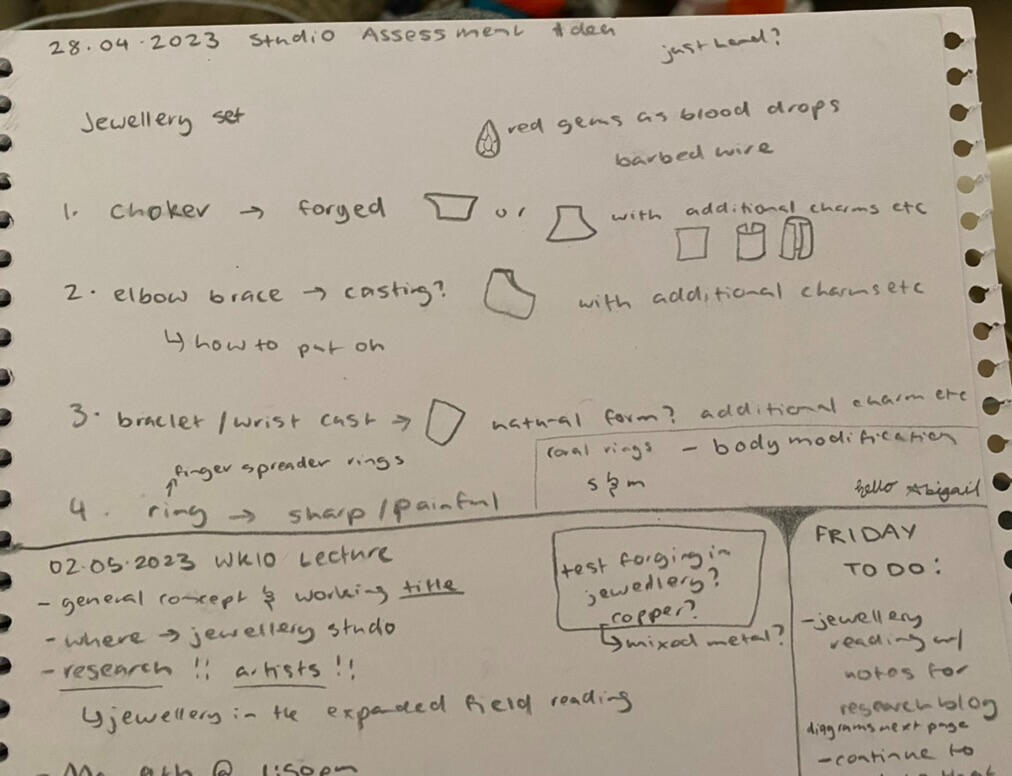 28.04.2023 Studio Assessment Idea
just hand?
Jewellery set
red gems as blood drops
barbed wire
1. choker → forged or with additional charms etc
2. elbow brace → casting? with additional charms etc
↳ how to put on
3. braclet/wrist cast → natural form? additional charm etc
finger spreader rings
4. ring → sharp/painful
coral rings – body modification
s & m
hello Abigail
02.05.2023 WK10 Lecture
- general concept & working title
- where → jewellery studo
- research !! artists !!
↳ jewellery in the expanded field reading
test forging in
jewedlery?
copper?
↳ mixed metal?
FRIDAY
TO DO:
- jewellery
reading w/
notes for
research blog
diagrams next page
- continue to
@ 1:50pm